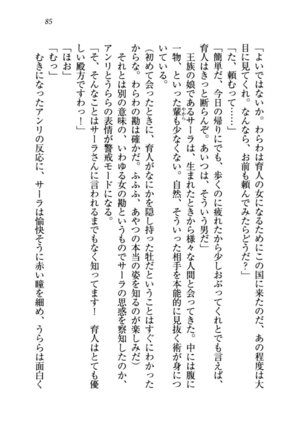 85
「よいではないか。わらわは育人の女になるためにこの国に来たのだ、あの程度は大
目に見てくれ。なんなら、お前も頼んでみたらどうだ？」
「た、頼むって……」
「簡単だ、今日の帰りにでも、歩くのに疲れたから少しおぶってくれとでも言えば、
育人はきっと断らんぞ。あいつは、そういう男だ」
　王族の娘であるサーラは、生まれたときから様々な人間と会ってきた。中には腹に
一物、といった輩も少なくない。自然、そういった相手を本能的に見抜く術が身につ
いている。
（初めて会ったときに、育人がなにかを隠し持った牡だということはすぐにわかった
からな。わらわの勘は確かだ。ふふふ、あやつの本当の姿を知るのが楽しみだ）
　それとは別の意味の、いわゆる女の勘というものでサーラの思惑を察知したのか、
アンリとうららの表情が警戒モードになる。
「そ、そんなことはサーラさんに言われるまでもなく知ってます！　育人はとても優
しい殿方ですわっ！」
「ほお」
「むっ」
　むきになったアンリの反応に、サーラは愉快そうに赤い瞳を細め、うららは面白く